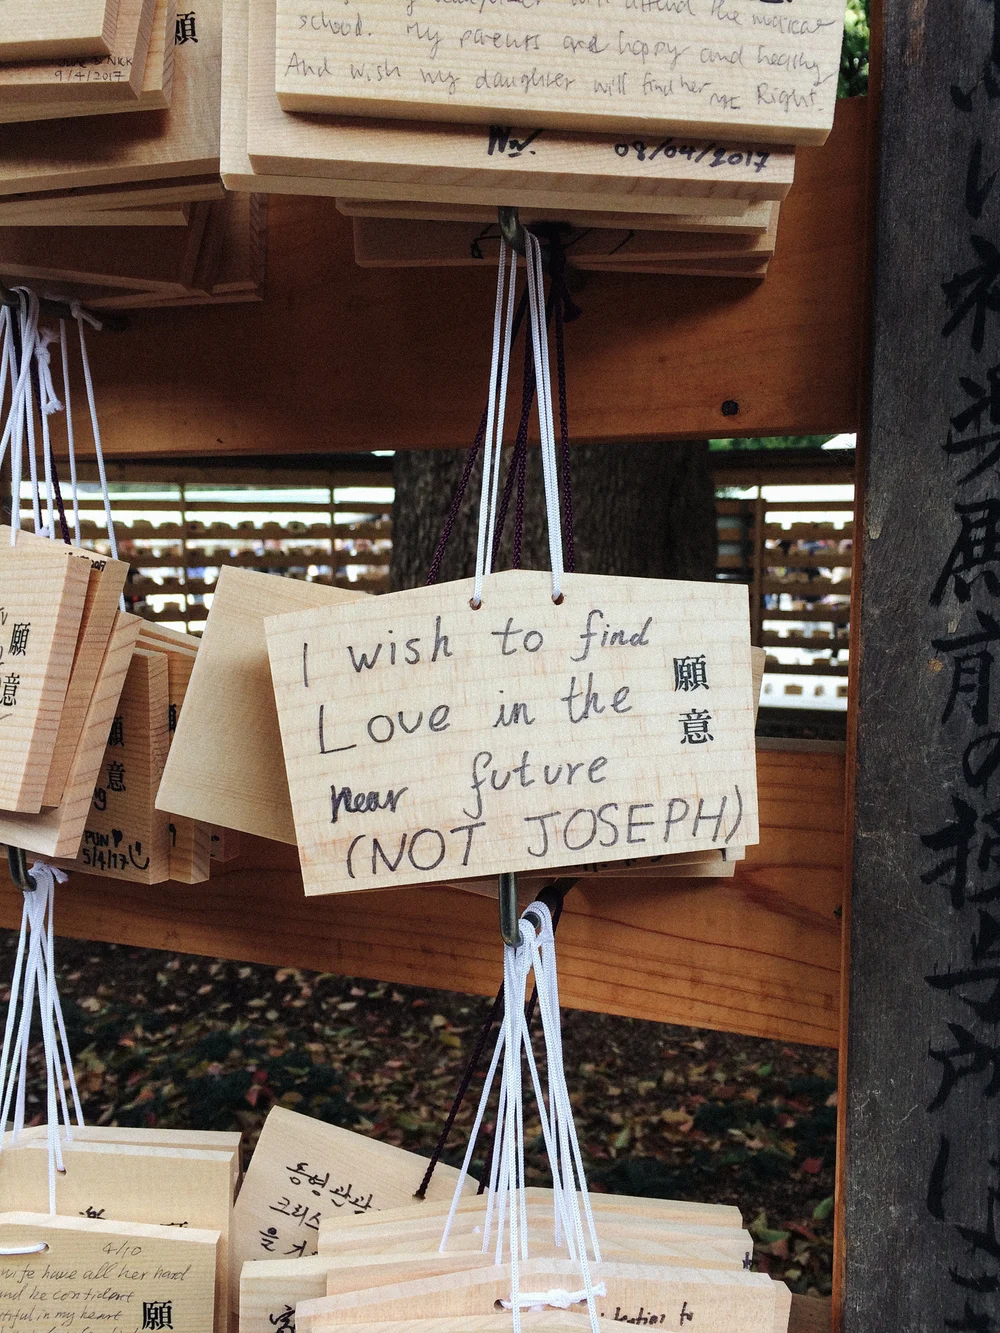 願
9/4/2017
will attend the medical
school. My parents and happy and healthy
And wish my daughter will find her Mr Right.
08/04/2017
I wish to find
Love in the
near future
(NOT JOSEPH)
願意
願意
願意
PUN
5/4/17
동형관광
크리스
을
4/10
wife have all her hard
and be confident
in my heart
願
to
神楽殿前の授与所は